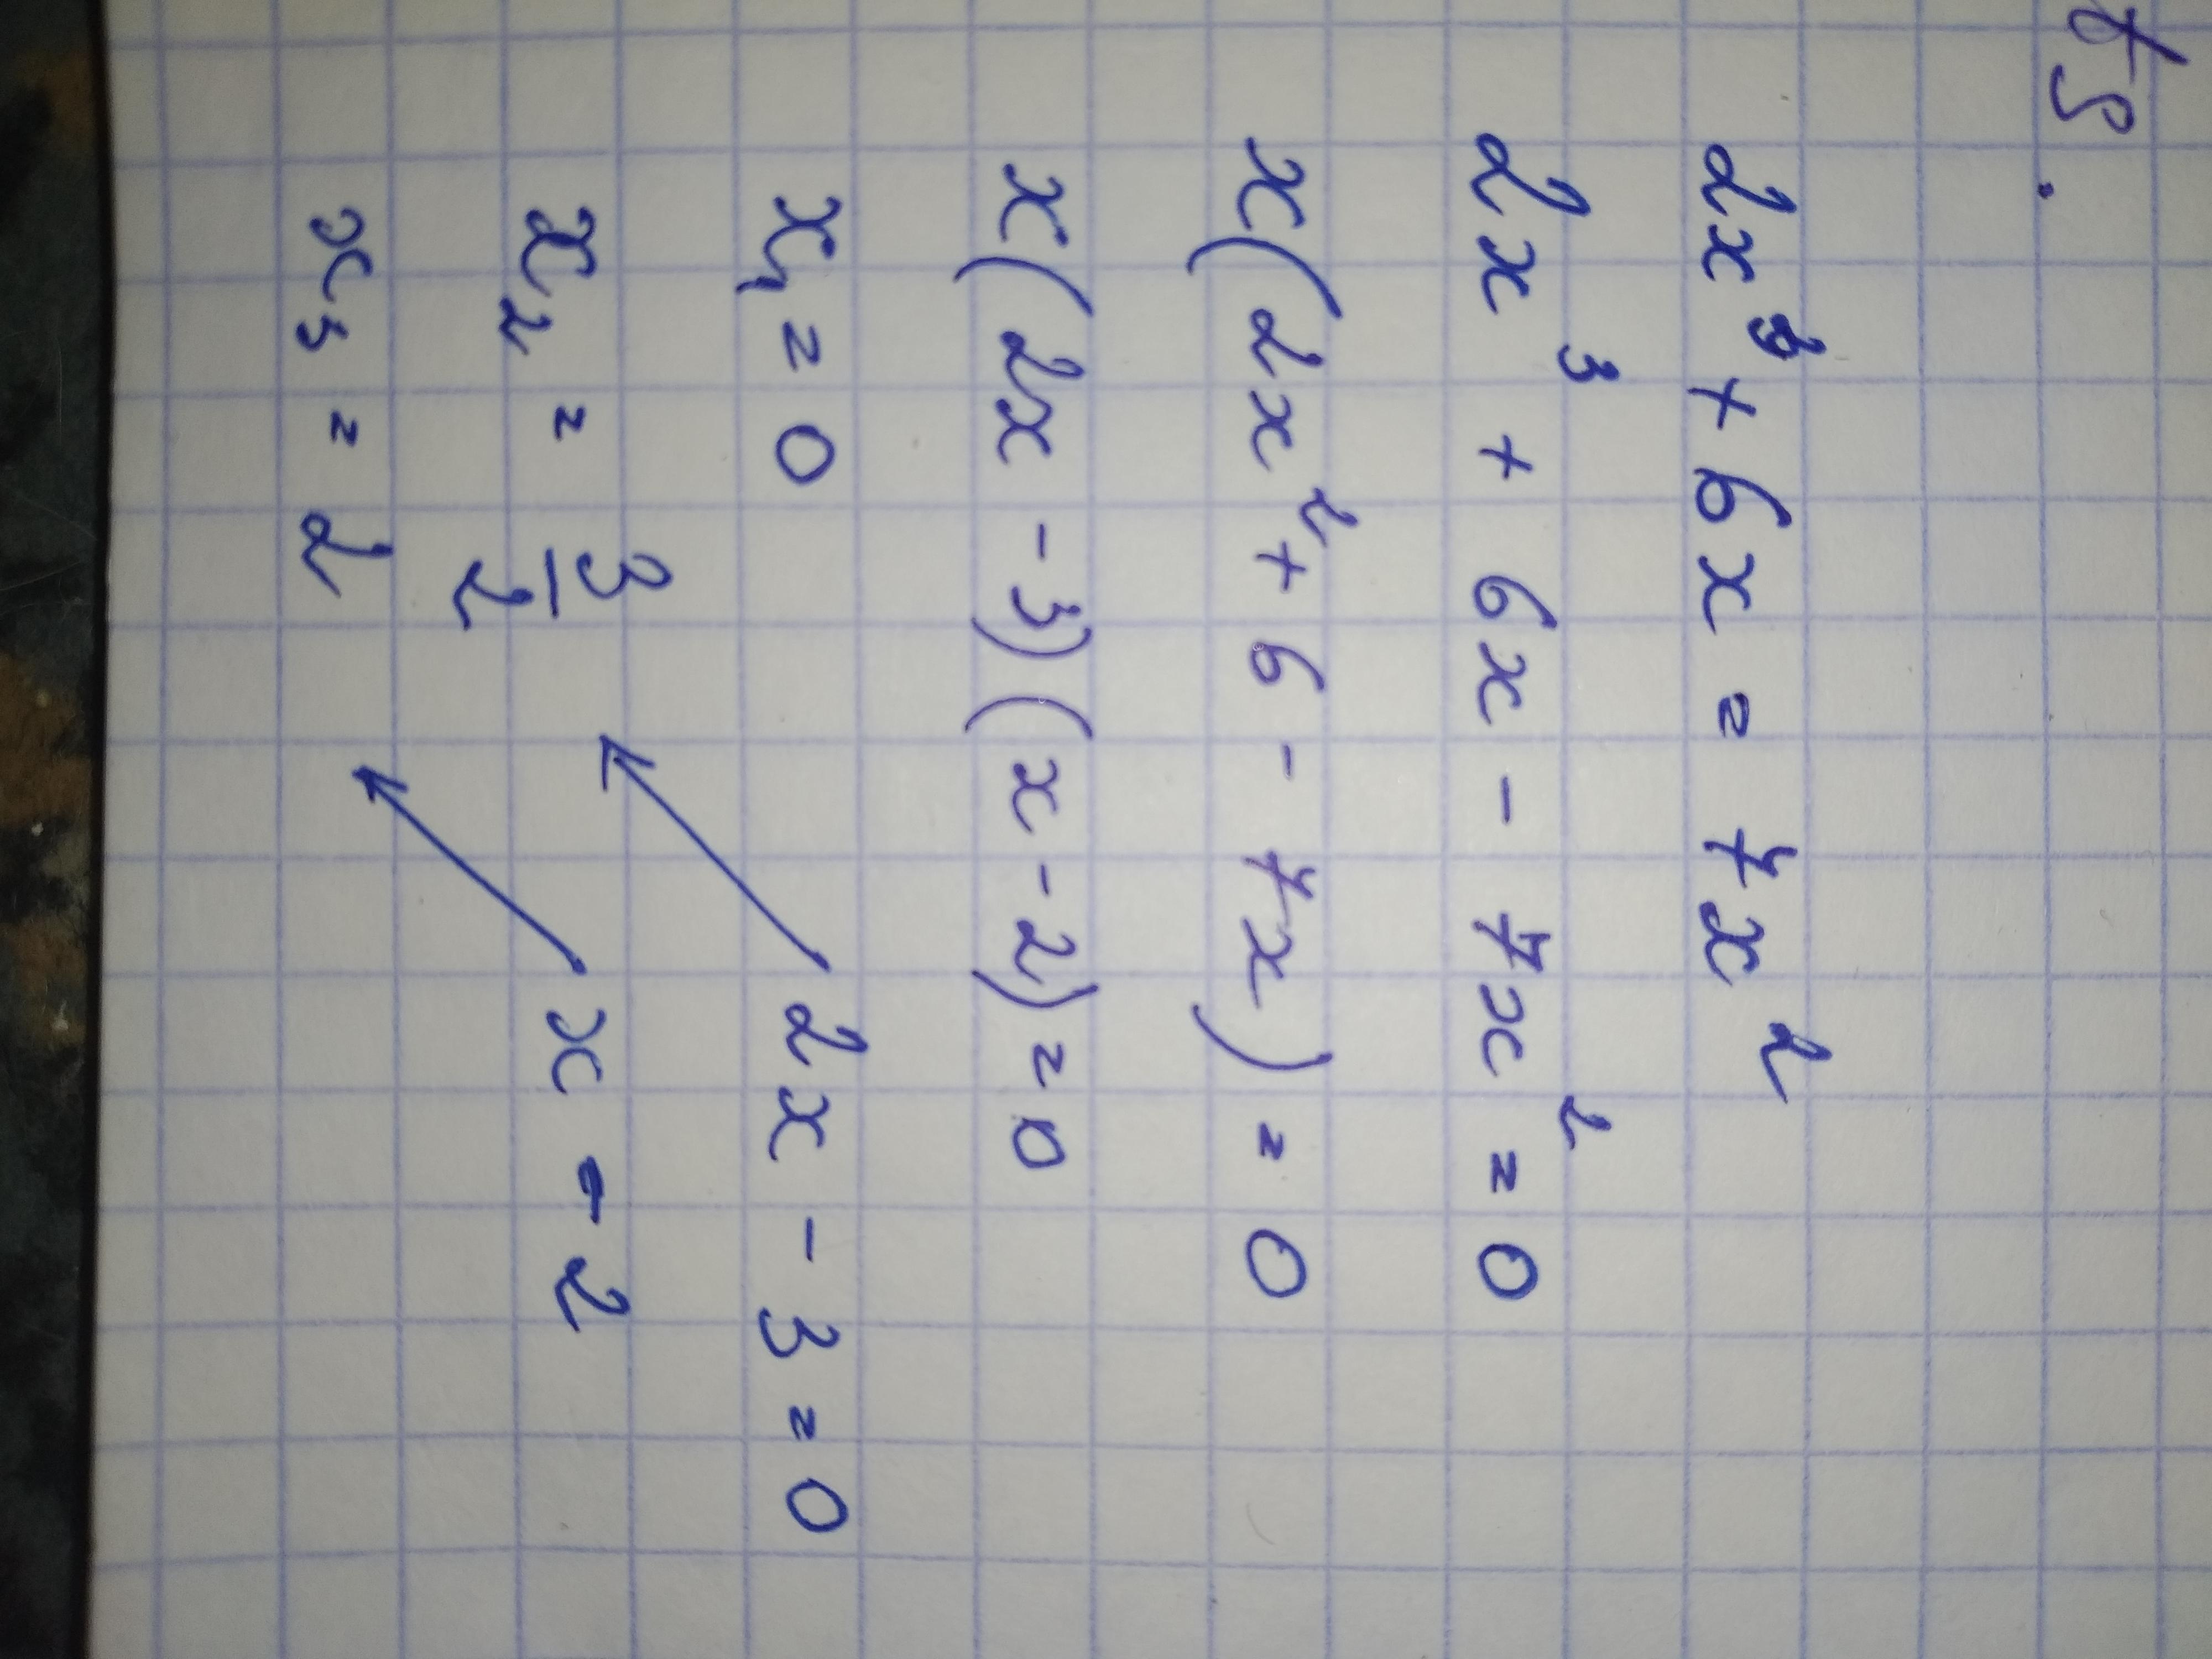 №5.
2x³ + 6x = 7x²
2x³ + 6x - 7x² = 0
x(2x² + 6 - 7x) = 0
x(2x - 3)(x - 2) = 0
x₁ = 0 2x - 3 = 0
x₂ = 3/2 x - 2
x₃ = 2